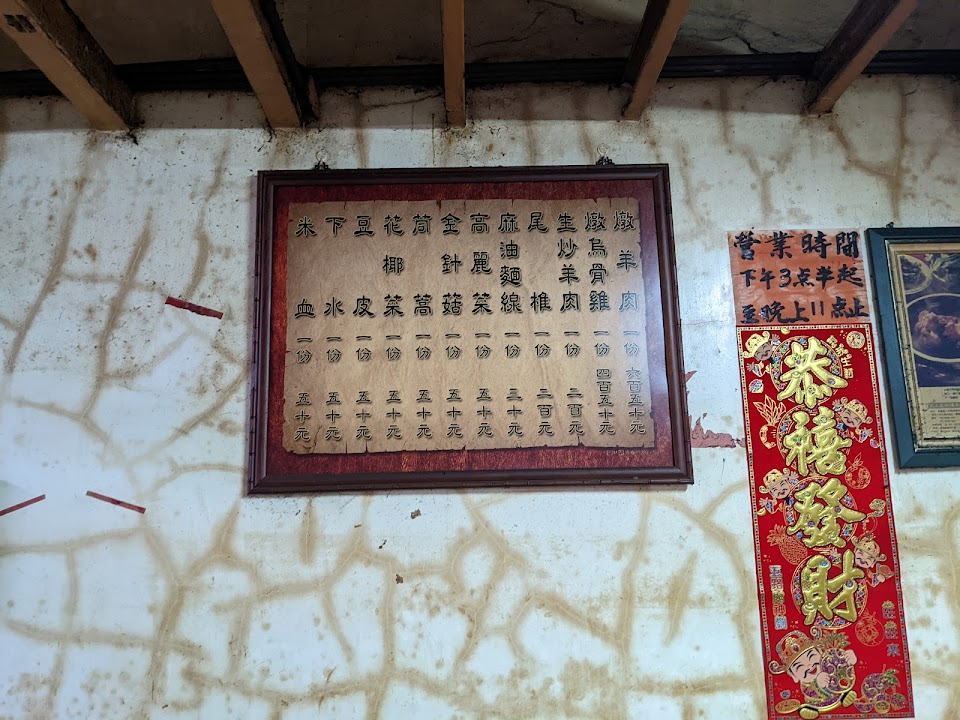 燉羊肉一份六百五十元
燉烏骨雞一份四百五十元
生炒羊肉一份二百元
尾椎一份二百元
麻油麵線一份三十元
高麗菜一份五十元
金針菇一份五十元
茼蒿一份五十元
花椰菜一份五十元
豆皮一份五十元
下水一份五十元
米血一份五十元
營業時間
下午3点半起
至晚上11点止
恭禧發財